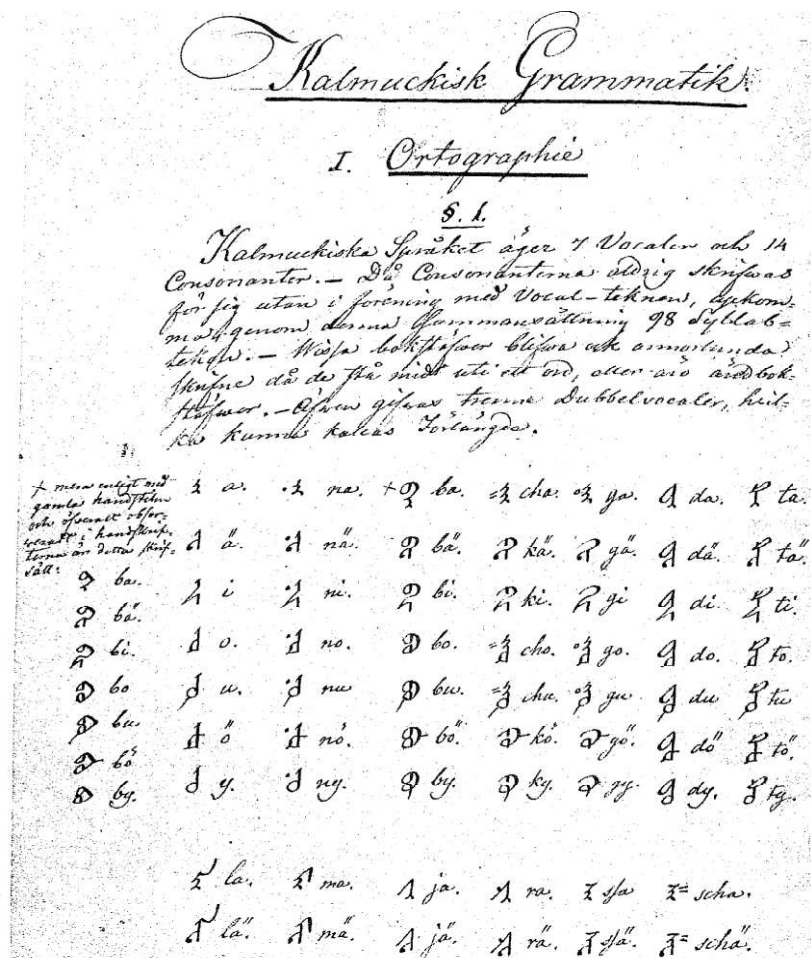 Kalmuckisk Grammatik.
I. Ortographie
§. 1.
Kalmuckiska Språket äger 7 Vocaler och 14
Consonanter. – Då Consonanterna aldrig skrifwas
för sig utan i förening med Vocal-teknen, upkom-
ma genom denna Sammansättning 98 Syllab=
tekn. – Wissa bokstäfwer blifwa ock annorlunda
skrifne då de stå midt uti ett ord, eller äro ändbok-
stäfwer. – Äfwen gifwas trenne Dubbelvocaler, hvil-
ka kunna kallas Förlängda.
+ mera enligt med
gamla handstilen
och öfverallt obser-
veradt i handskrif-
terna är detta skrif-
sätt:
a. na. + ba. cha. ga. da. ta.
ä. nä. bä. kä. gä. dä. tä.
i ni. bi. ki. gi di. ti.
o. no. bo. cho. go. do. to.
u. nu bu. chu. gu du tu
ö nö. bö. kö. gö. dö tö.
y. ny. by. ky. gy. dy. ty.
ba.
bä.
bi.
bo
bu
bö
by.
la. ma. ja. ra. sa scha.
lä. mä. jä. rä. sä. schä.